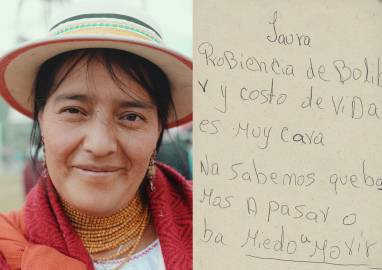 Laura
ProBiencia de Bolib
y costo de ViDa
es Muy cara
Na sabemos queba
Mas A pasar o
ba Miedo a Morir